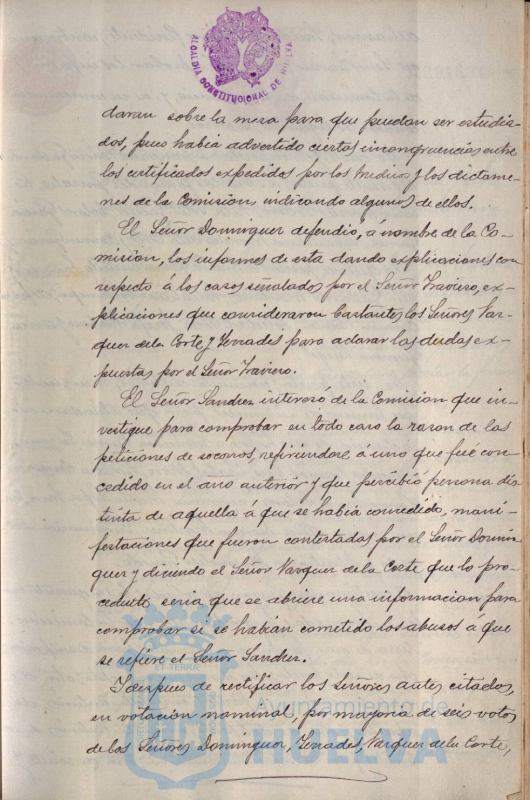 ALCALDIA CONSTITUCIONAL DE HUELVA
daran sobre la mesa para que puedan ser estudia-
dos, pues habia advertido ciertas incongruencias entre
los certificados expedidos por los Medicos y los dictame-
nes de la Comision indicando algunos de ellos.
El Señor Dominguez defendio, á nombre de la Co-
mision, los informes de esta dando explicaciones con
respecto á los casos señalados por el Señor Traviero, ex-
plicaciones que consideraron bastantes los Señores Vaz-
quez de la Corte y Terrades para aclarar las dudas ex-
puestas por el Señor Traviero.
El Señor Sanchez interesó de la Comision que in-
vestigue para comprobar en todo caso la razon de las
peticiones de socorros, refiriendose á uno que fué con-
cedido en el año anterior y que percibió persona dis-
tinta de aquella á que se habia concedido, mani-
festaciones que fueron contestadas por el Señor Domin-
guez y diciendo el Señor Vazquez de la Corte que lo pro-
cedente seria que se abriese una informacion para
comprobar si se habian cometido los abusos a que
se refiere el Señor Sanchez.
Y despues de rectificar los Señores antes citados,
en votacion nominal, por mayoria de seis votos
de los Señores Dominguez, Terrades, Vazquez de la Corte,
ET TERRÆ
Ayuntamiento de
HUELVA